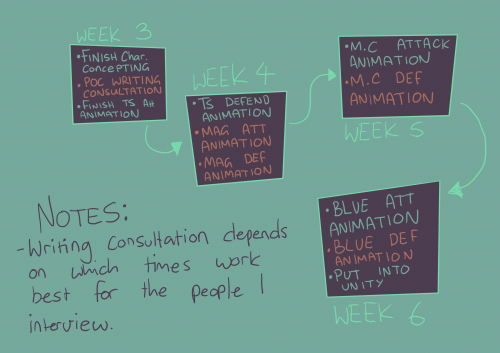 WEEK 3
•FINISH Char.
CONCEPTING
•POC WRITING
CONSULTATION
•FINISH TS Att
ANIMATION
WEEK 4
•TS DEFEND
ANIMATION
•MAG ATT
ANIMATION
•MAG DEF
ANIMATION
•M.C ATTACK
ANIMATION
•M.C DEF
ANIMATION
WEEK 5
•BLUE ATT
ANIMATION
•BLUE DEF
ANIMATION
•PUT INTO
UNITY
WEEK 6
NOTES:
-Writing Consultation depends
on which times work
best for the people I
interview.